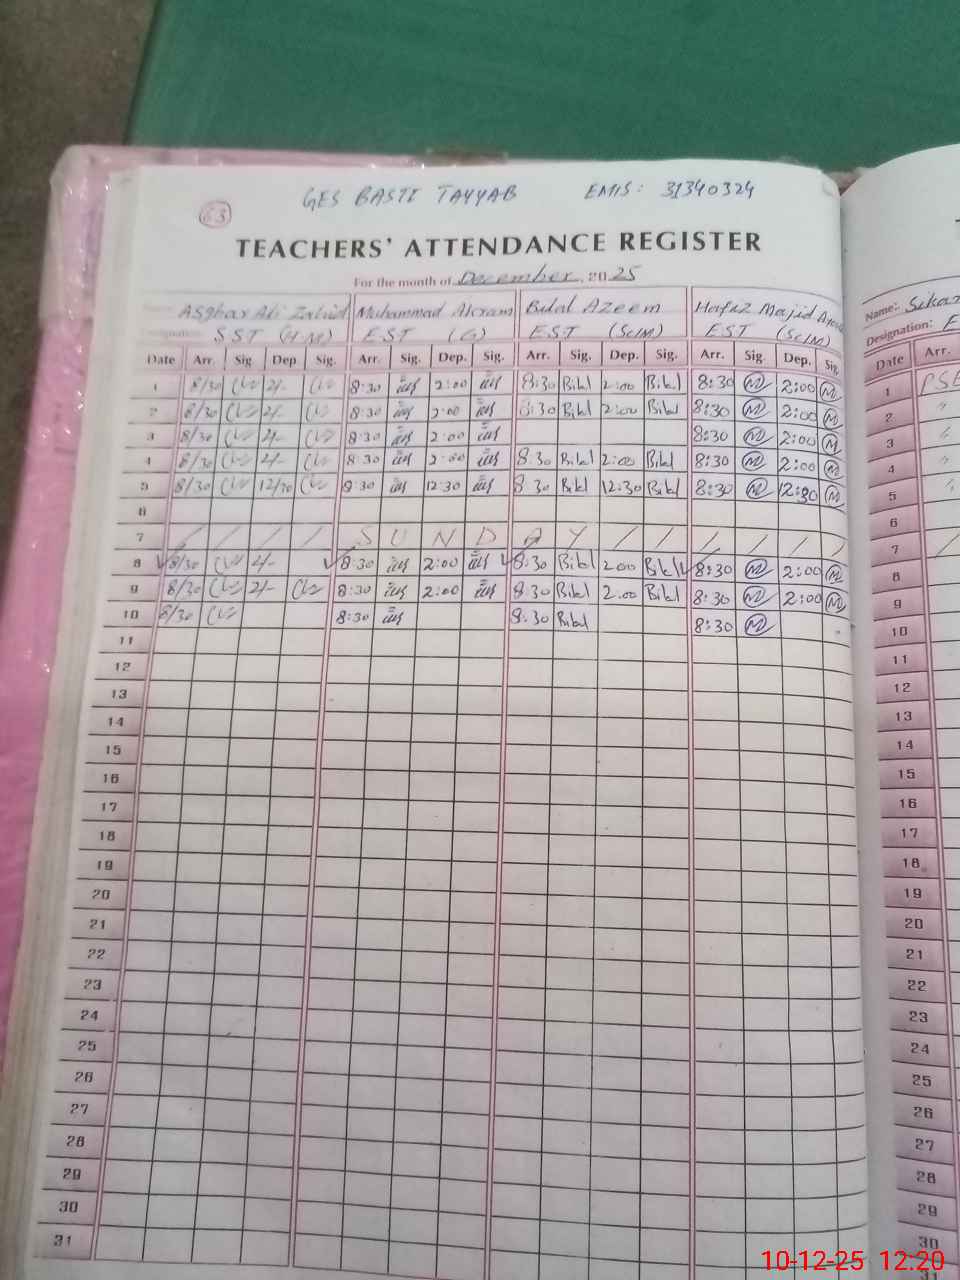 GES BASTI TAYYAB EMIS: 31340324
63
TEACHERS' ATTENDANCE REGISTER
For the month of December, 2025
Asghar Ali Zahid Muhammad Akram Bilal Azeem Hafiz Majid
SST (H.M) EST (G) EST (Sc/M) EST (Sc/M)
Date Arr. Sig Dep. Sig. Arr. Sig. Dep. Sig. Arr. Sig. Dep. Sig. Arr. Sig. Dep. Sig.
1 8/30 2/- 8:30 2:00 8:30 Bilal 2:00 Bilal 8:30 M 2:00 M
2 8/30 2/- 8:30 2:00 8:30 Bilal 2:00 Bilal 8:30 M 2:00 M
3 8/30 2/- 8:30 2:00 8:30 M 2:00 M
4 8/30 2/- 8:30 2:00 8:30 Bilal 2:00 Bilal 8:30 M 2:00 M
5 8/30 12/30 8:30 12:30 8:30 Bilal 12:30 Bilal 8:30 M 12:30 M
6
7 / / / / S U N D A Y / / / / / /
8 8/30 2/- 8:30 2:00 8:30 Bilal 2:00 Bilal 8:30 M 2:00 M
9 8/30 2/- 8:30 2:00 8:30 Bilal 2:00 Bilal 8:30 M 2:00 M
10 8/30 8:30 8:30 Bilal 8:30 M
11
12
13
14
15
16
17
18
19
20
21
22
23
24
25
26
27
28
29
30
31
Name:
Designation: E
Date Arr.
1
2 "
3 "
4 "
5 "
6
7 /
8
9
10
11
12
13
14
15
16
17
18
19
20
21
22
23
24
25
26
27
28
29
30
31
10-12-25 12:20